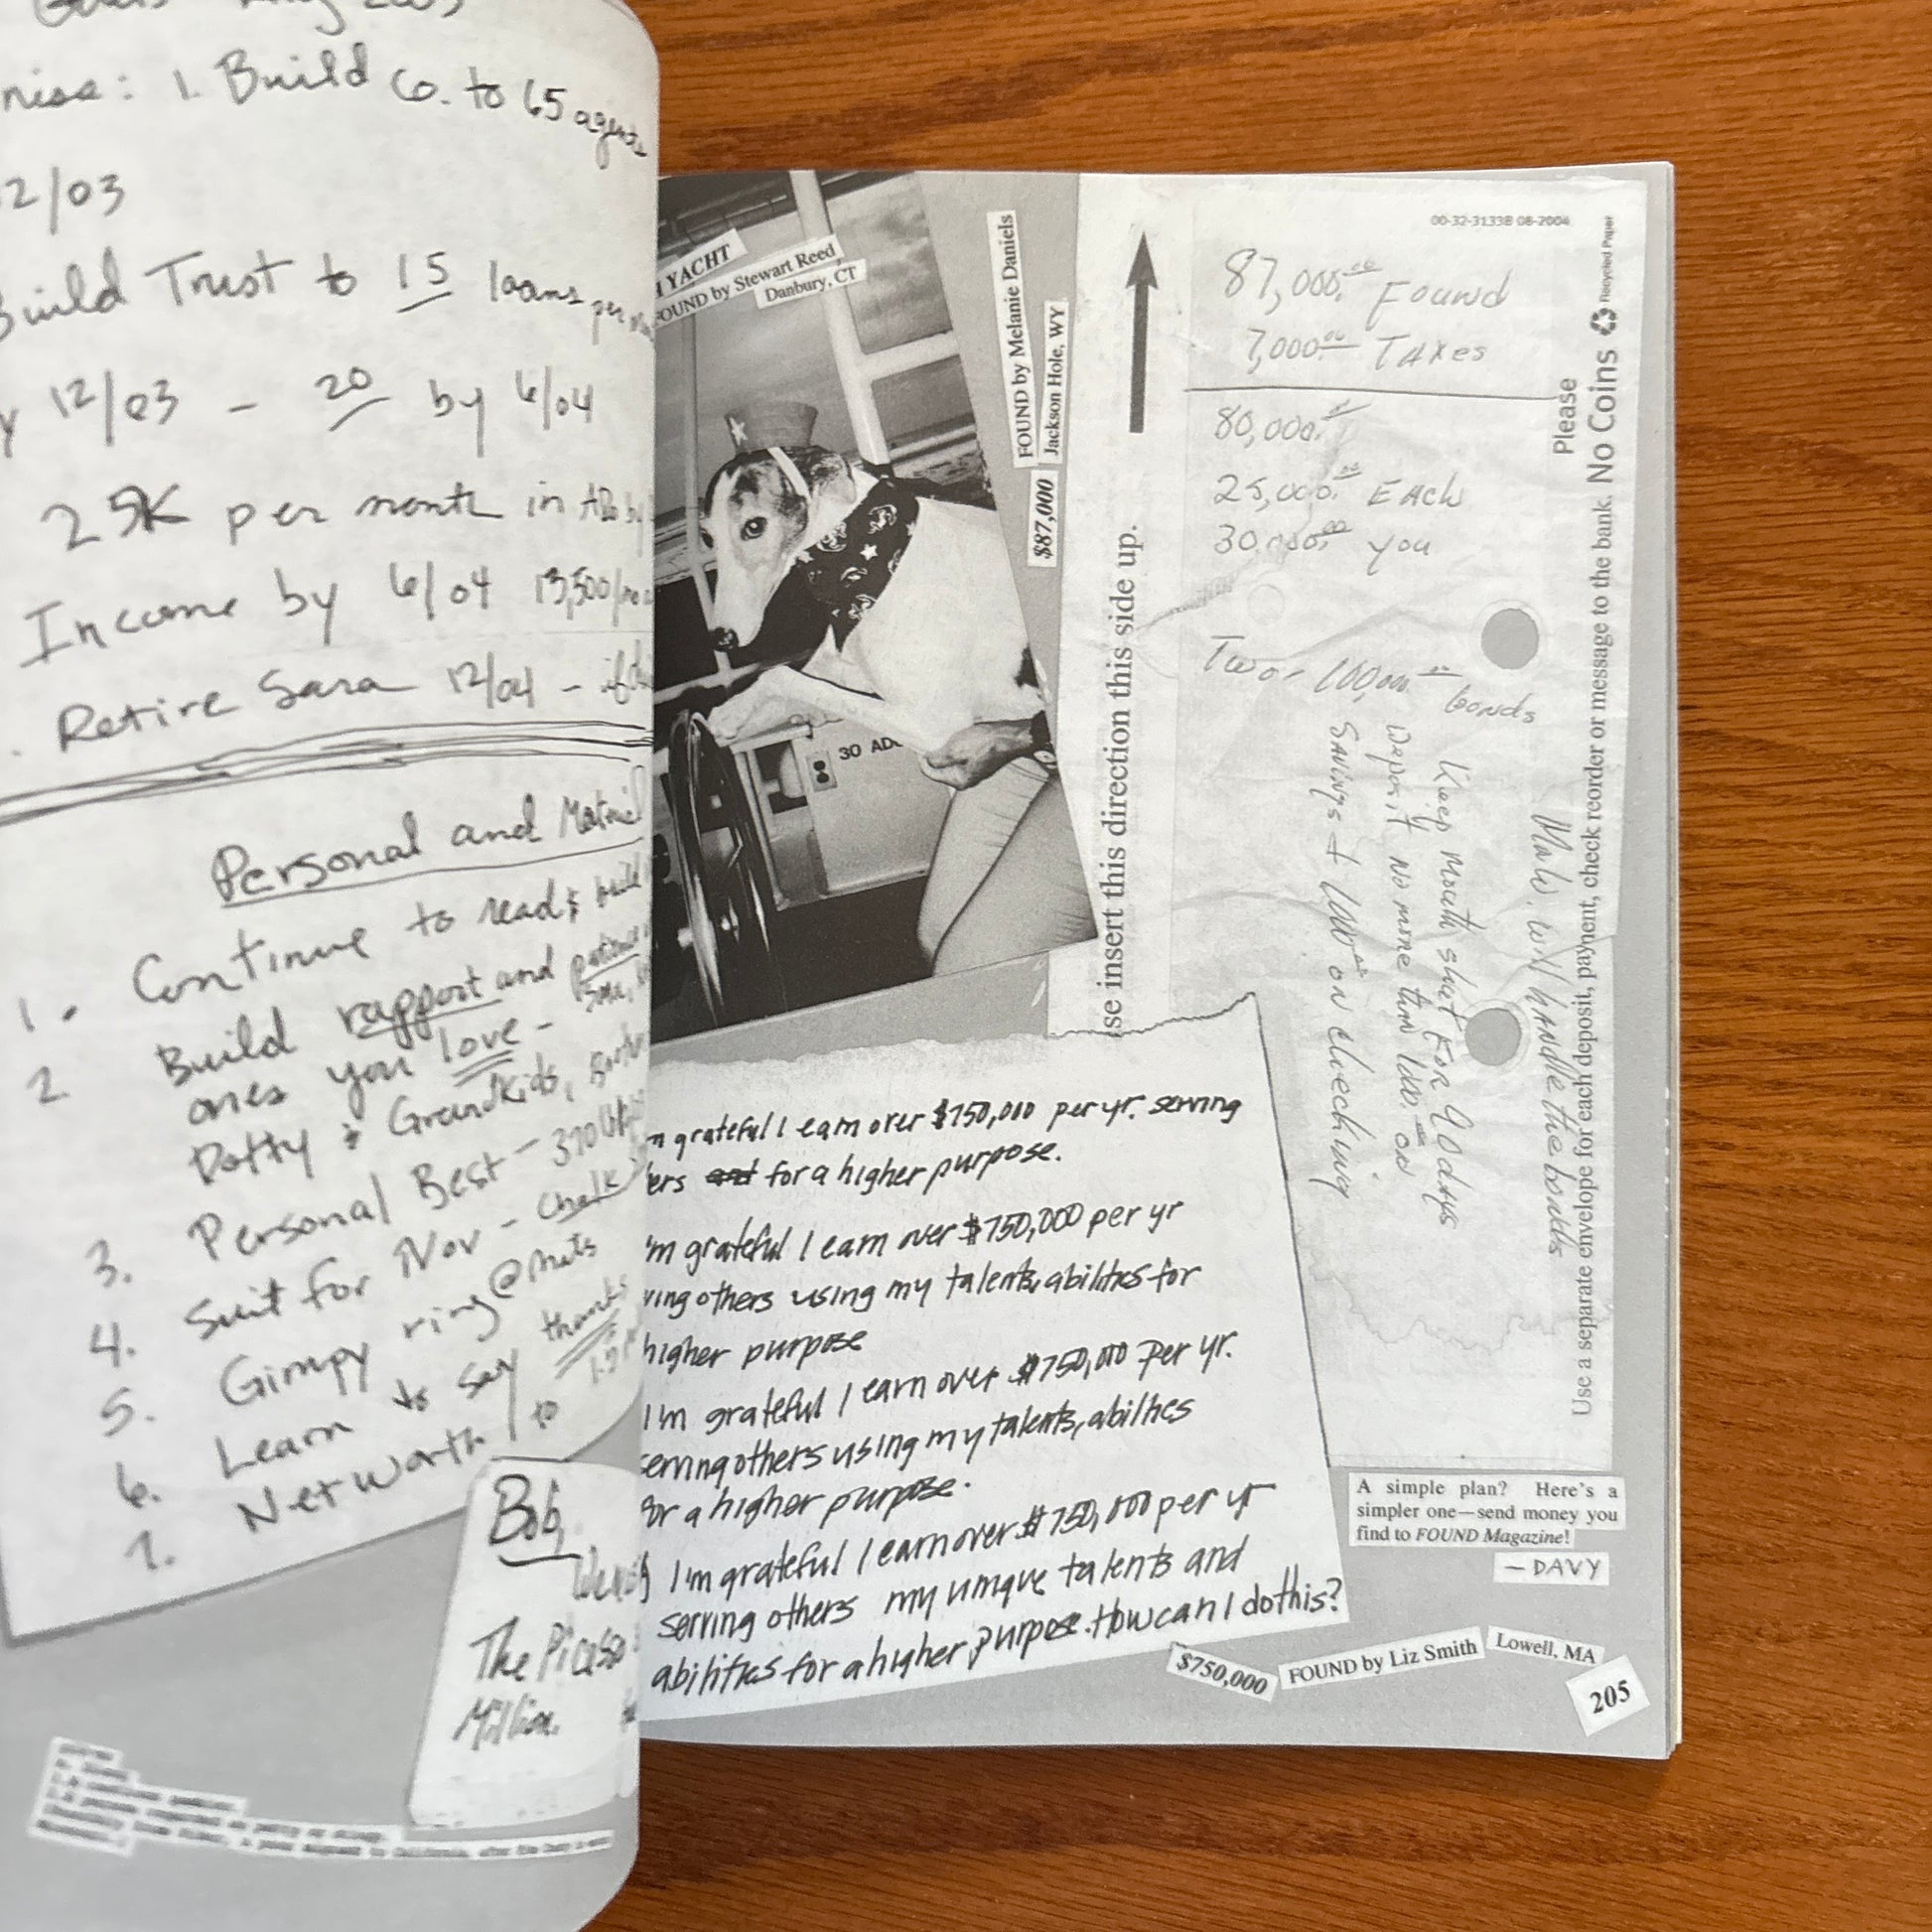 1. Build Co. to 65 agents
12/03
Build Trust to 15 loans per
12/03 - 20 by 6/04
25K per month in
Income by 6/04 13,500/mo
Retire Sara 12/04 -
Personal and
1. Continue to read & build
2 Build rapport and
ones you love -
Dotty & Grandkids,
3. Personal Best - 370
4. Suit for Nov - Chalk
5. Gimpy ring @
6. Learn to say thanks
7. Net worth to
Bob,
The Picasso
Million.
YACHT
FOUND by Stewart Reed
Danbury, CT
30 AD
FOUND by Melanie Daniels
Jackson Hole, WY
$87,000
se insert this direction this side up.
00-32-3133B 08-2004
87,000.00 Found
7,000.00 Taxes
80,000.00
25,000.00 Each
30,000.00 you
Two - 100,000 bonds
Keep mouth shut For 90 days
Deposit no more than 1,000.00 on
Savings + 1,000.00 on checking
will handle the bonds
Please
No Coins
Recycled Paper
Use a separate envelope for each deposit, payment, check reorder or message to the bank.
m grateful I earn over $750,000 per yr. serving
ers and for a higher purpose.
I'm grateful I earn over $750,000 per yr
ving others using my talents, abilities for
higher purpose
I'm grateful I earn over $750,000 per yr.
serving others using my talents, abilities
for a higher purpose.
I'm grateful I earn over $750,000 per yr
serving others my unique talents and
abilities for a higher purpose. How can I do this?
A simple plan? Here's a
simpler one—send money you
find to FOUND Magazine!
—DAVY
$750,000
FOUND by Liz Smith
Lowell, MA
205